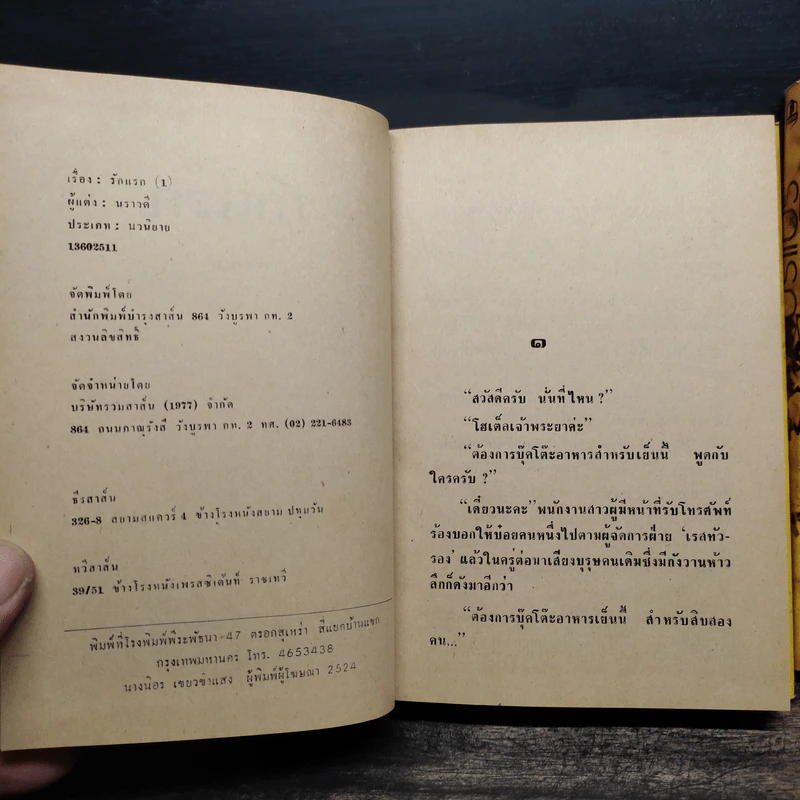 เรื่อง : รักแรก (1)
ผู้แต่ง : นราวดี
ประเภท : นวนิยาย
13602511
จัดพิมพ์โดย
สำนักพิมพ์บำรุงสาส์น 864 วังบูรพา กท. 2
สงวนลิขสิทธิ์
จัดจำหน่ายโดย
บริษัทรวมสาส์น (1977) จำกัด
864 ถนนภาณุรังสี วังบูรพา กท. 2 ทศ. (02) 221-6483
ธีรสาส์น
326-8 สยามสแควร์ 4 ข้างโรงหนังสยาม ปทุมวัน
ทวีสาส์น
39/51 ข้างโรงหนังเพรสซิเด้นท์ ราชเทวี
พิมพ์ที่โรงพิมพ์พีระพัธนา-47 ตรอกสุเหร่า สี่แยกบ้านแขก
กรุงเทพมหานคร โทร. 4653438
นางนิอร เขยวขำแสง ผู้พิมพ์ผู้โฆษณา 2524
๑
“สวัสดีครับ นั่นที่ไหน ?”
“โฮเต็ลเจ้าพระยาค่ะ”
“ต้องการบุ๊คโต๊ะอาหารสำหรับเย็นนี้ พูดกับ
ใครครับ ?”
“เดี๋ยวนะคะ” พนักงานสาวผู้มีหน้าที่รับโทรศัพท์
ร้องบอกให้บ๋อยคนหนึ่งไปตามผู้จัดการฝ่าย ‘เรสทัว-
รอง’ แล้วในครู่ต่อมาเสียงบุรุษคนเดิมซึ่งมีกังวานห้าว
ลึกก็ดังมาอีกว่า
“ต้องการบุ๊คโต๊ะอาหารเย็นนี้ สำหรับสิบสอง
คน...”
รักแรก